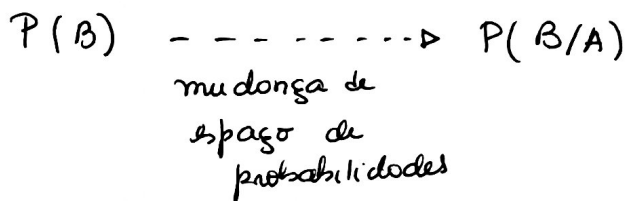 P(B) - - - - - - - - -▷ P(B/A)
mudança de
espaço de
probabilidades